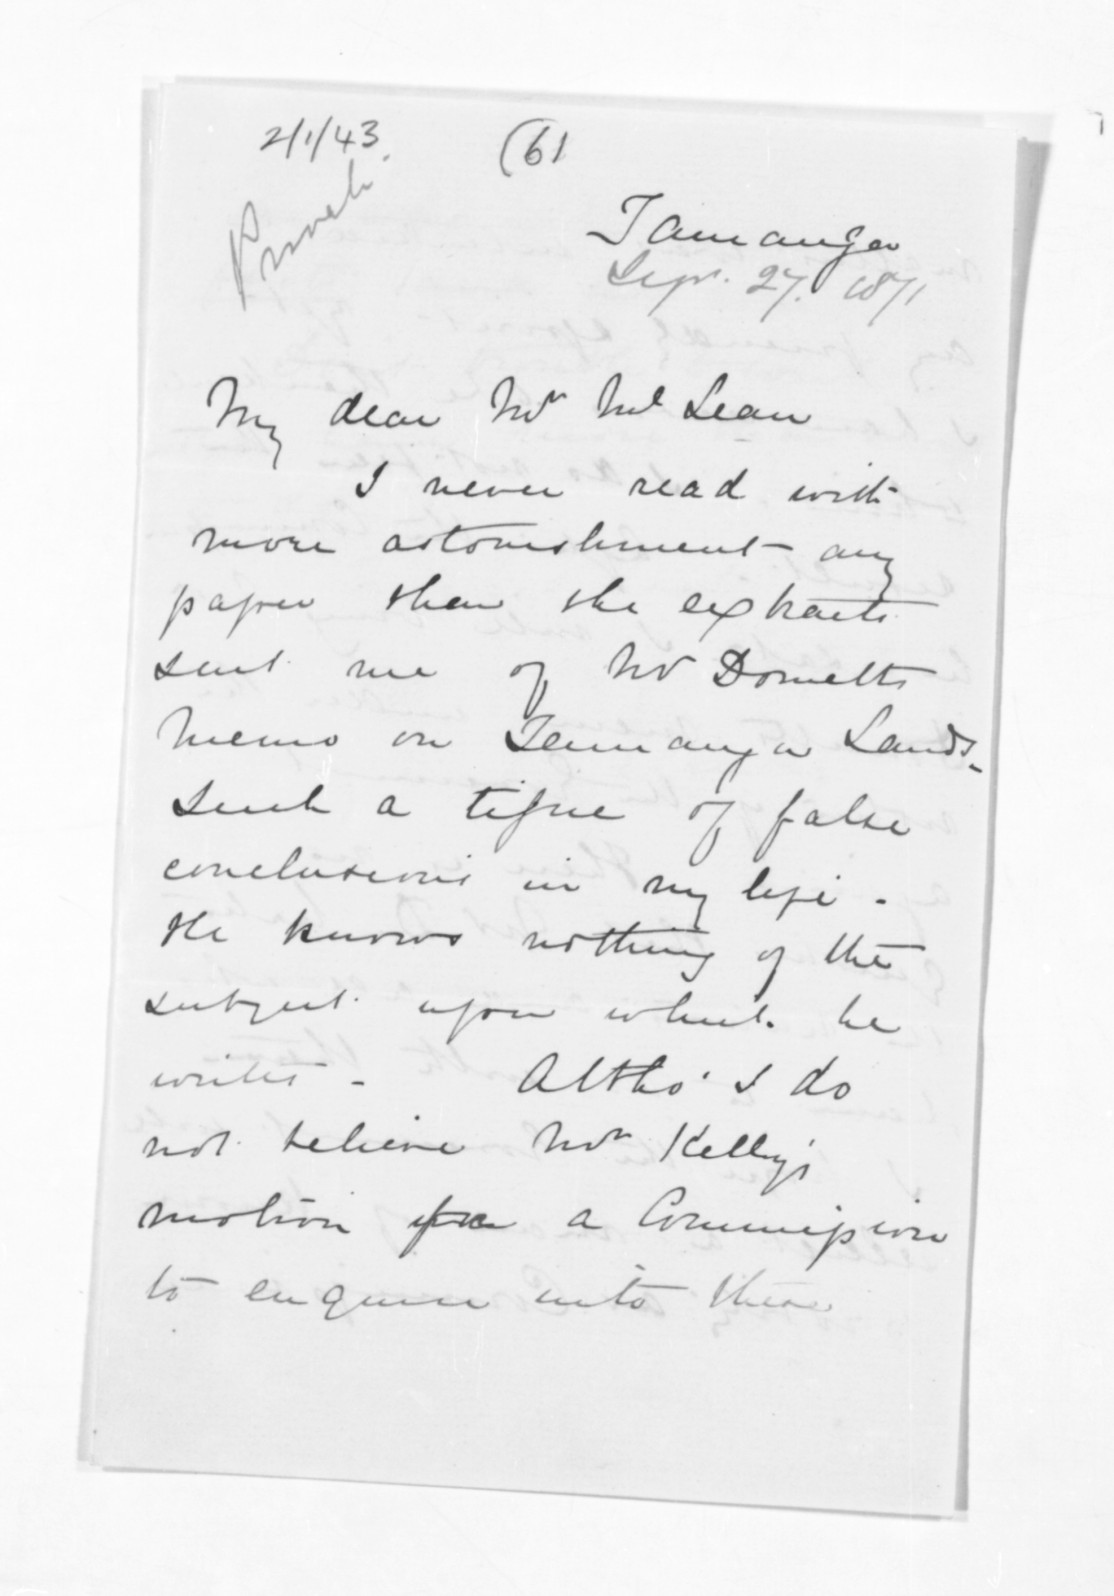 2/1/43.
(61
Private
Tauranga
Sept. 27. 1871
My dear Mr McLean
I never read with
more astonishment any
paper than the extracts
sent me of Mr Dometts
memo on Tauranga Lands.
Such a tissue of false
conclusions in my life -
He knows nothing of the
subject upon which he
writes - Altho' I do
not believe Mr Kelly's
motion for a Commission
to enquire into these